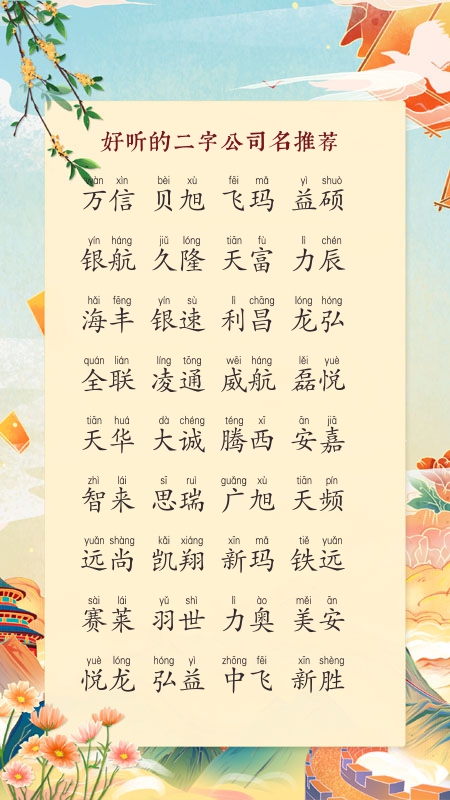 好听的二字公司名推荐
wàn xìn bèi xù fēi mǎ yì shuò
万信 贝旭 飞玛 益硕
yín háng jiǔ lóng tiān fù lì chén
银航 久隆 天富 力辰
hǎi fēng yín sù lì chāng lóng hóng
海丰 银速 利昌 龙弘
quán lián líng tōng wēi háng lěi yuè
全联 凌通 威航 磊悦
tiān huá dà chéng téng xī ān jiā
天华 大诚 腾西 安嘉
zhì lái sī ruì guǎng xù tiān pín
智来 思瑞 广旭 天频
yuǎn shàng kǎi xiáng xīn mǎ tiě yuǎn
远尚 凯翔 新玛 铁远
sài lái yǔ shì lì ào měi ān
赛莱 羽世 力奥 美安
yuè lóng hóng yì zhōng fēi xīn shèng
悦龙 弘益 中飞 新胜